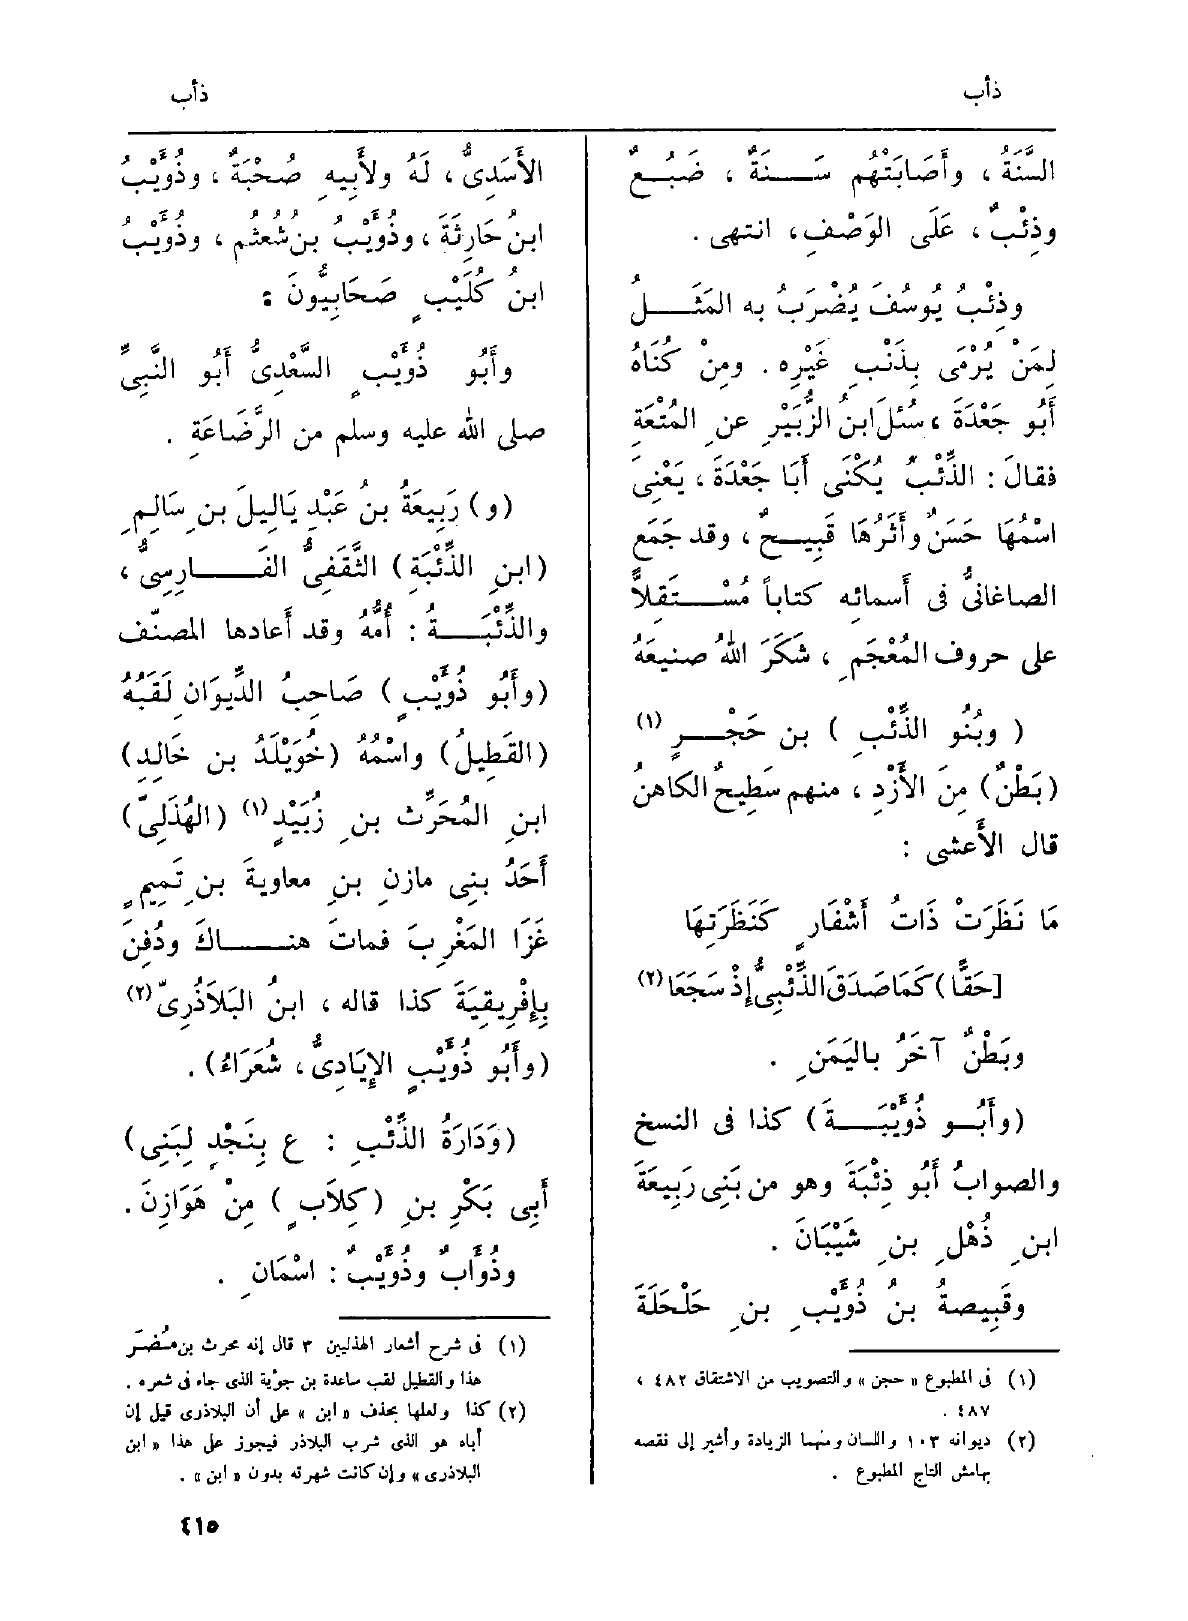 ذأب
ذأب
السَّنَةُ ، وأَصَابَتْهُم سَـــنَةٌ ، ضَبُــعٌ
وذِئْبٌ ، عَلَى الوَصْفِ ، انتهى .
وذِئْبُ يُوسُفَ يُضْرَبُ به المَثَــلُ
لِمَنْ يُرْمَى بِذَنْبِ غَيْرِه . ومِنْ كُنَاهُ
أَبُو جَعْدَةَ ، سُئلَ ابنُ الزُّبَيْرِ عنِ المُتْعَةِ
فقالَ : الذِّئْبُ يُكْنَى أَبَا جَعْدَةَ ، يَعْنِى
اسْمُهَا حَسَنٌ وأَثَرُهَا قَبِيــحٌ ، وقد جَمَع
الصاغانىُّ فى أَسمائه كتاباً مُسْــتَقِلاًّ
على حروف المُعْجَمِ ، شَكَرَ اللهُ صنيعَهُ
( وبَنُو الذِّئْبِ ) بن حَجْــرٍ (١)
(بَطْنٌ) مِنَ الأَزْدِ ، منهم سَطِيحٌ الكاهنُ
قال الأَعشى :
مَا نَظَرَتْ ذَاتُ أَشْفَارٍ كَنَظْرَتِهَا
[حَقًّا) كَمَا صَدَقَ الذِّئْبِىُّ إِذْ سَجَعَا (٢)
وبَطْنٌ آخَرُ باليَمَنِ .
(وأَبُــو ذُؤَيْبَــةَ) كذا فى النسخ
والصوابُ أَبُو ذِئْبَةَ وهو من بَنِى رَبِيعَةَ
ابنِ ذُهْلِ بنِ شَيْبَانَ .
وقَبِيصةُ بنُ ذُؤَيْبِ بنِ حَلْحَلَةَ
(١) فى المطبوع « حجن » والتصويب من الاشتقاق ٤٨٢ ،
٤٨٧ .
(٢) ديوانه ١٠٣ واللسان ومنهما الزيادة وأشير إلى نقصه
بهامش التاج المطبوع .
الأَسَدِىُّ ، لَهُ ولأَبِيهِ صُحْبَةٌ ، وذُؤَيْبُ
ابنُ حَارِثَةَ ، وذُؤَيْبُ بنُ شُعثُم ، وذُؤَيْبُ
ابنُ كُلَيْبٍ صَحَابِيُّونَ :
وأَبُو ذُؤَيْبٍ السَّعْدِىُّ أَبُو النَّبِىِّ
صلى الله عليه وسلم من الرَّضَاعَةِ .
(و) رَبِيعَةُ بنُ عَبْدِ يَالِيلَ بنِ سَالِمِ
(ابنِ الذِّئْبَة) الثَّقَفِىُّ الفَــارِسِىُّ ،
والذِّئْبَــةُ : أُمُّهُ وقد أَعادها المصنّف
(وأَبُو ذُؤَيْبٍ ) صَاحِبُ الدِّيوَانِ لَقَبُهُ
(القَطِيلُ) واسْمُهُ (خُوَيْلَدُ بن خَالِدِ)
ابنِ المُحَرِّث بنِ زُبَيْدٍ (١) (الهُذَلِىّ)
أَحَدُ بنِى مازنِ بنِ معاوية بنِ تَمِيمٍ
غَزَا المَغْرِبَ فماتَ هنــاكَ ودُفِنَ
بِإِفْرِيقِيَةَ كذا قاله ، ابنُ البَلاَذُرِىّ (٢)
(وأَبُو ذُؤَيْبٍ الإِيَادِىُّ ، شُعَرَاءُ) .
(وَدَارَةُ الذِّئْبِ : ع بِنَجْدٍ لِبَنِى)
أَبِى بَكْرِ بنِ (كِلاَبٍ ) مِنْ هَوَازِنَ .
وذُؤَابٌ وذُؤَيْبٌ : اسْمَانِ .
(١) فى شرح أشعار الهذليين ٣ قال إنه محرث بن مُضَرَ
هذا والقطيل لقب ساعدة بن جؤية الذى جاء فى شعره .
(٢) كذا ولعلها بحذف « ابن » على أن البلاذرى قيل إن
أباه هو الذى شرب البلاذر فيجوز على هذا « ابن
البلاذرى » وإن كانت شهرته بدون « ابن » .
٤١٥